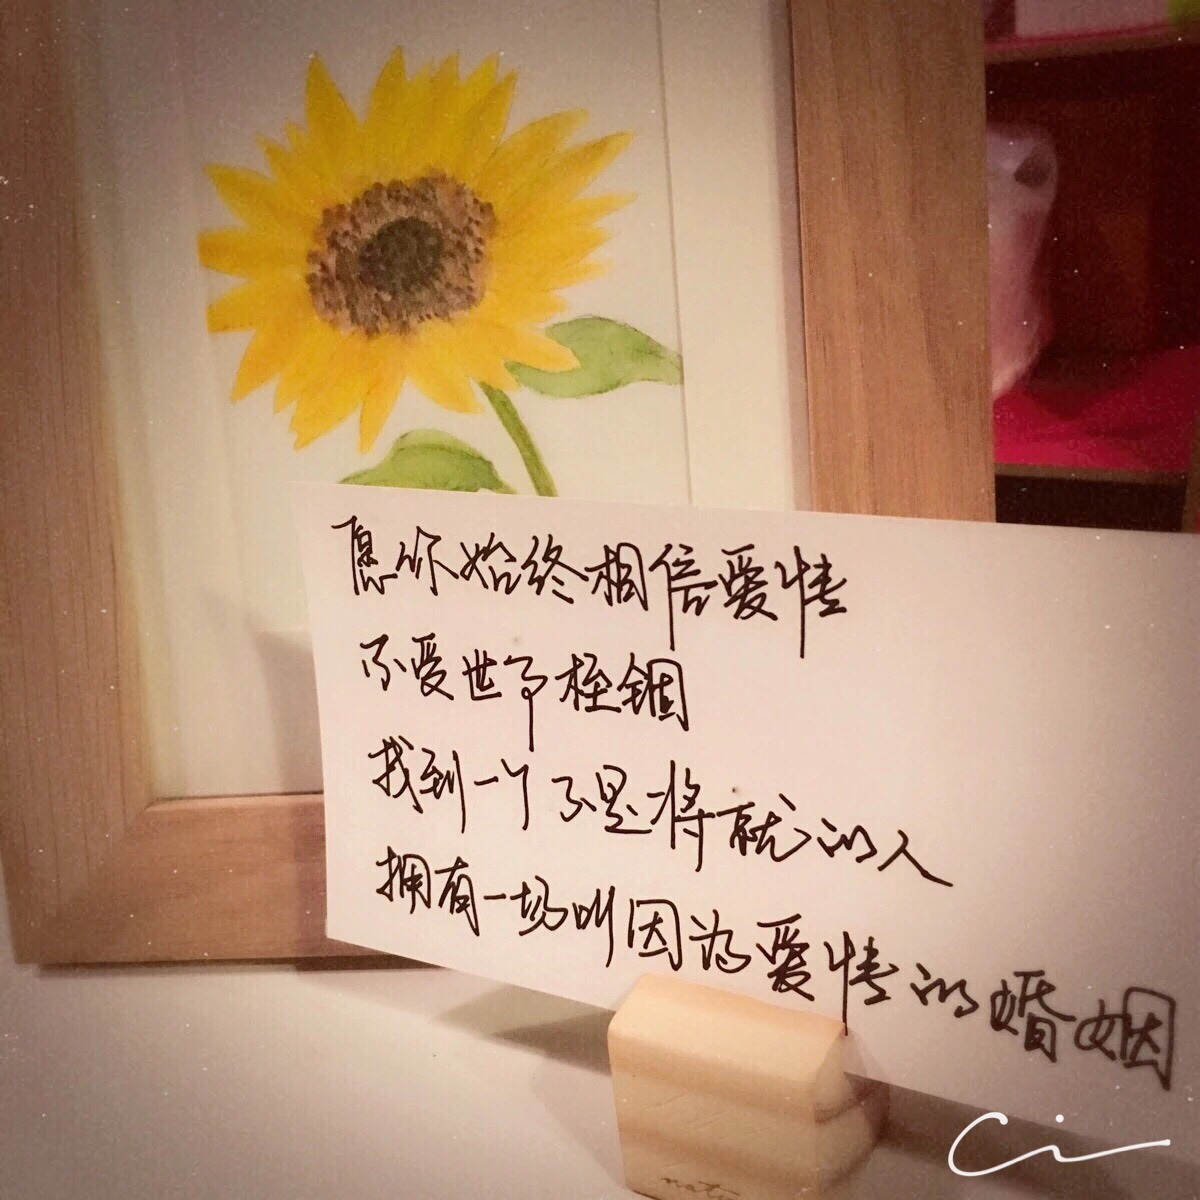 愿你始终相信爱情
不受世事桎锢
找到一个不是将就的人
拥有一场叫因为爱情的婚姻
Ci